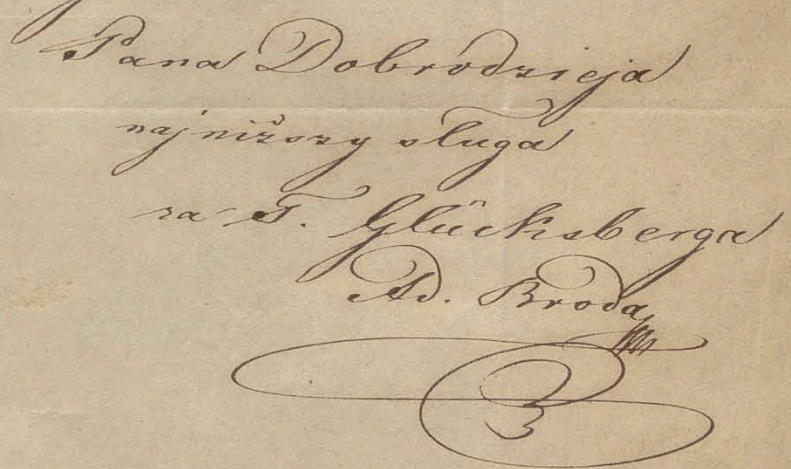 Pana Dobrodzieja
najniższy sługa
za T. Glücksberga
Ad. Broda